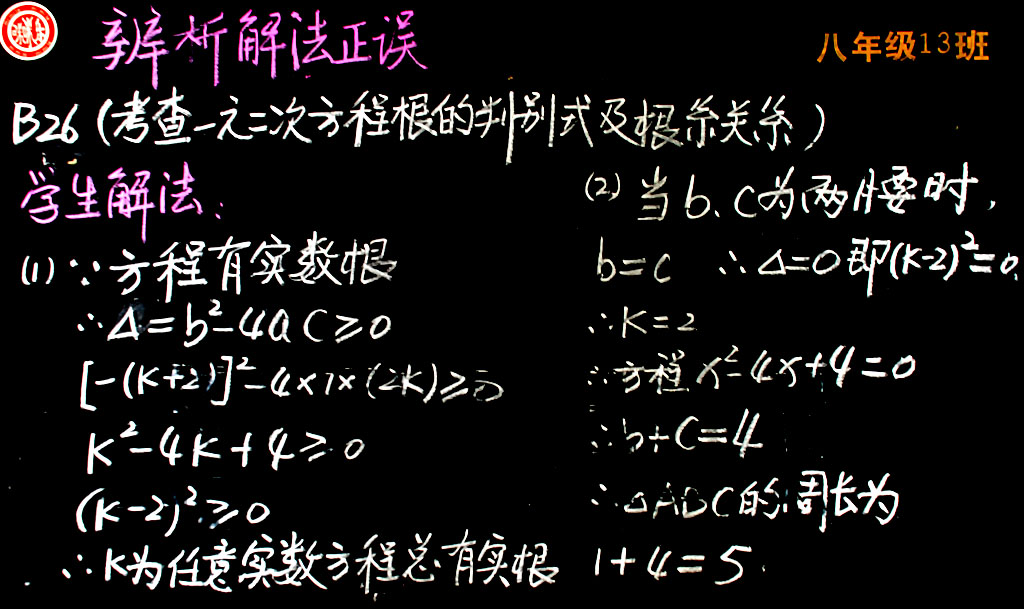 辨析解法正误
八年级13班
B26(考查一元二次方程根的判别式及根系关系)
学生解法:
(1)∵方程有实数根
∴Δ=b²-4ac≥0
[-(k+2)]²-4×1×(2k)≥0
k²-4k+4≥0
(k-2)²≥0
∴k为任意实数方程总有实根
(2)当b、c为两腰时,
b=c ∴Δ=0即(k-2)²=0
∴k=2
∴方程x²-4x+4=0
∴b+c=4
∴△ABC的周长为
1+4=5.